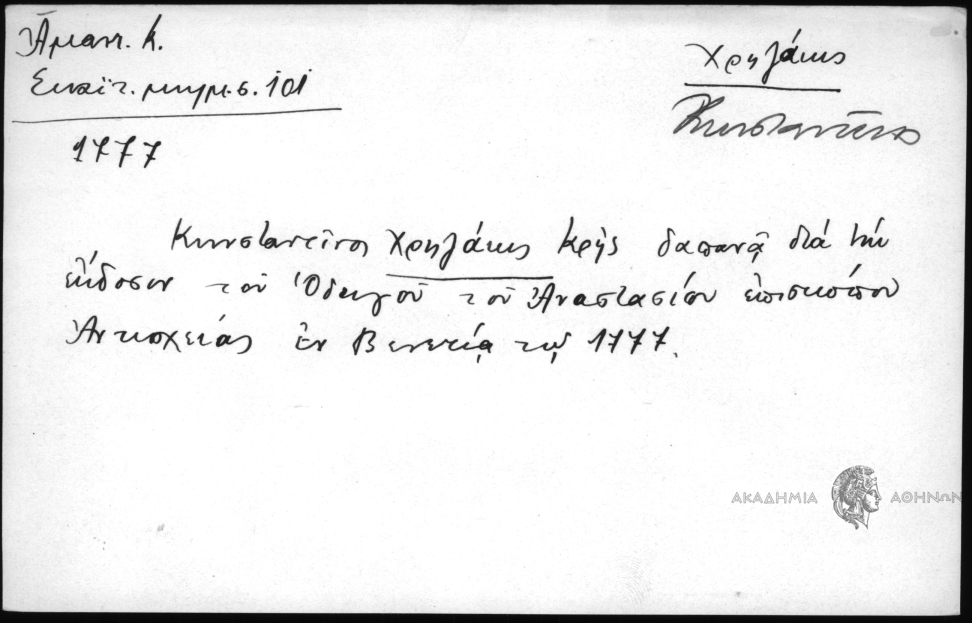 Ἀμαντ. Κ.
Σιναϊτ. μνημ. σ. 101
1777
Χρηζάκης
Κωνσταντῖνος
Κωνσταντῖνος Χρηζάκης Κρής δαπανᾷ διά τήν
ἔκδοσιν τοῦ Ὁδηγοῦ τοῦ Ἀναστασίου ἐπισκόπου
Ἀντιοχείας ἐν Βενετίᾳ τῷ 1777.
ΑΚΑΔΗΜΙΑ ΑΘΗΝΩΝ